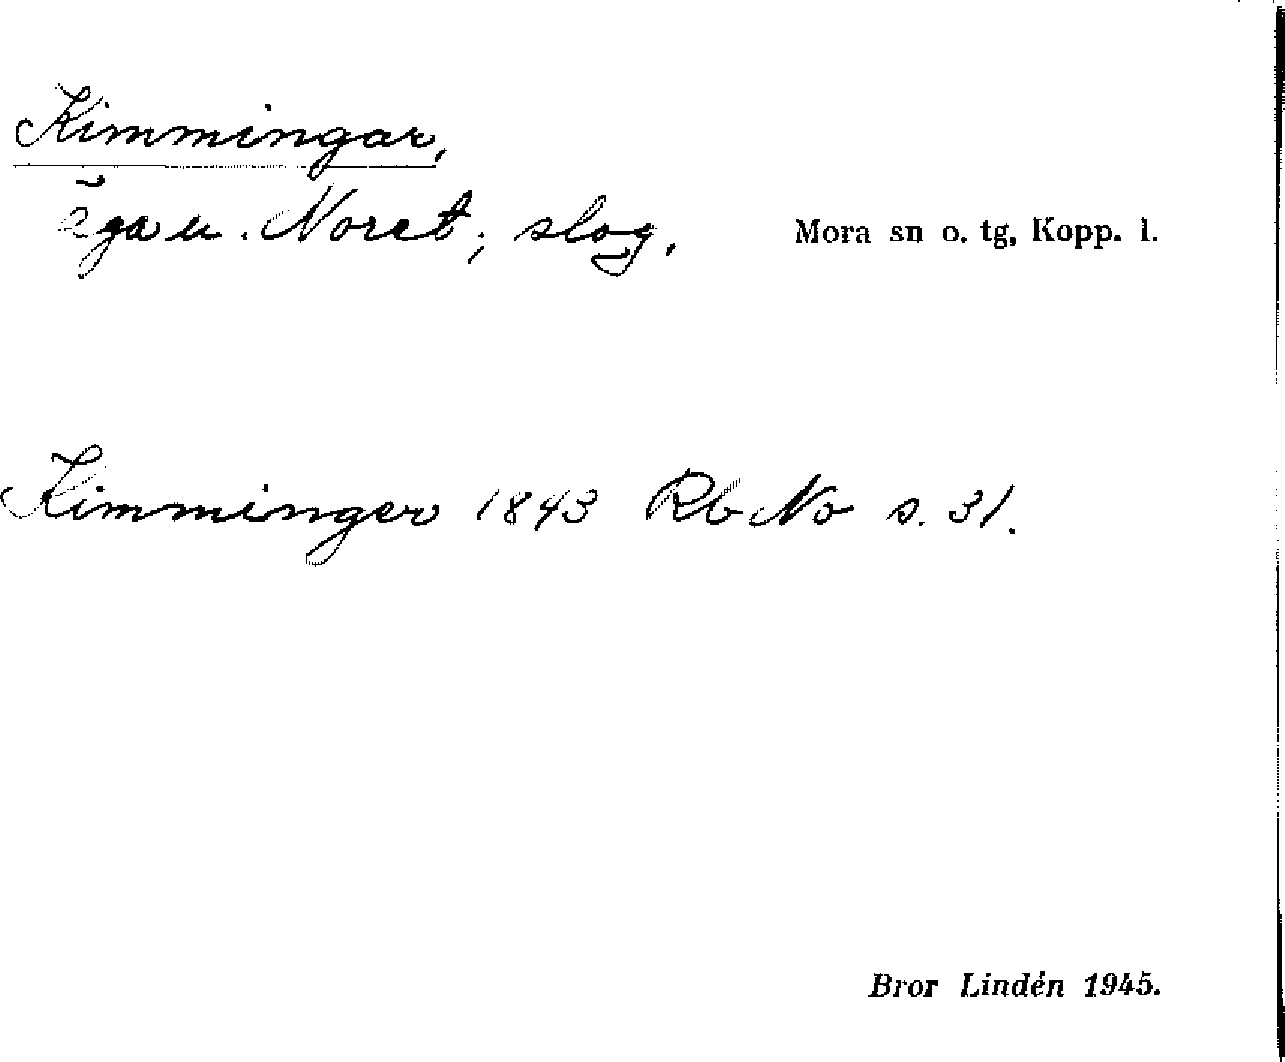 Kimmingar,
äga u. Noret; slog.
Mora sn o. tg, Kopp. l.
Kimminger 1843 Rb No s. 31.
Bror Lindén 1945.